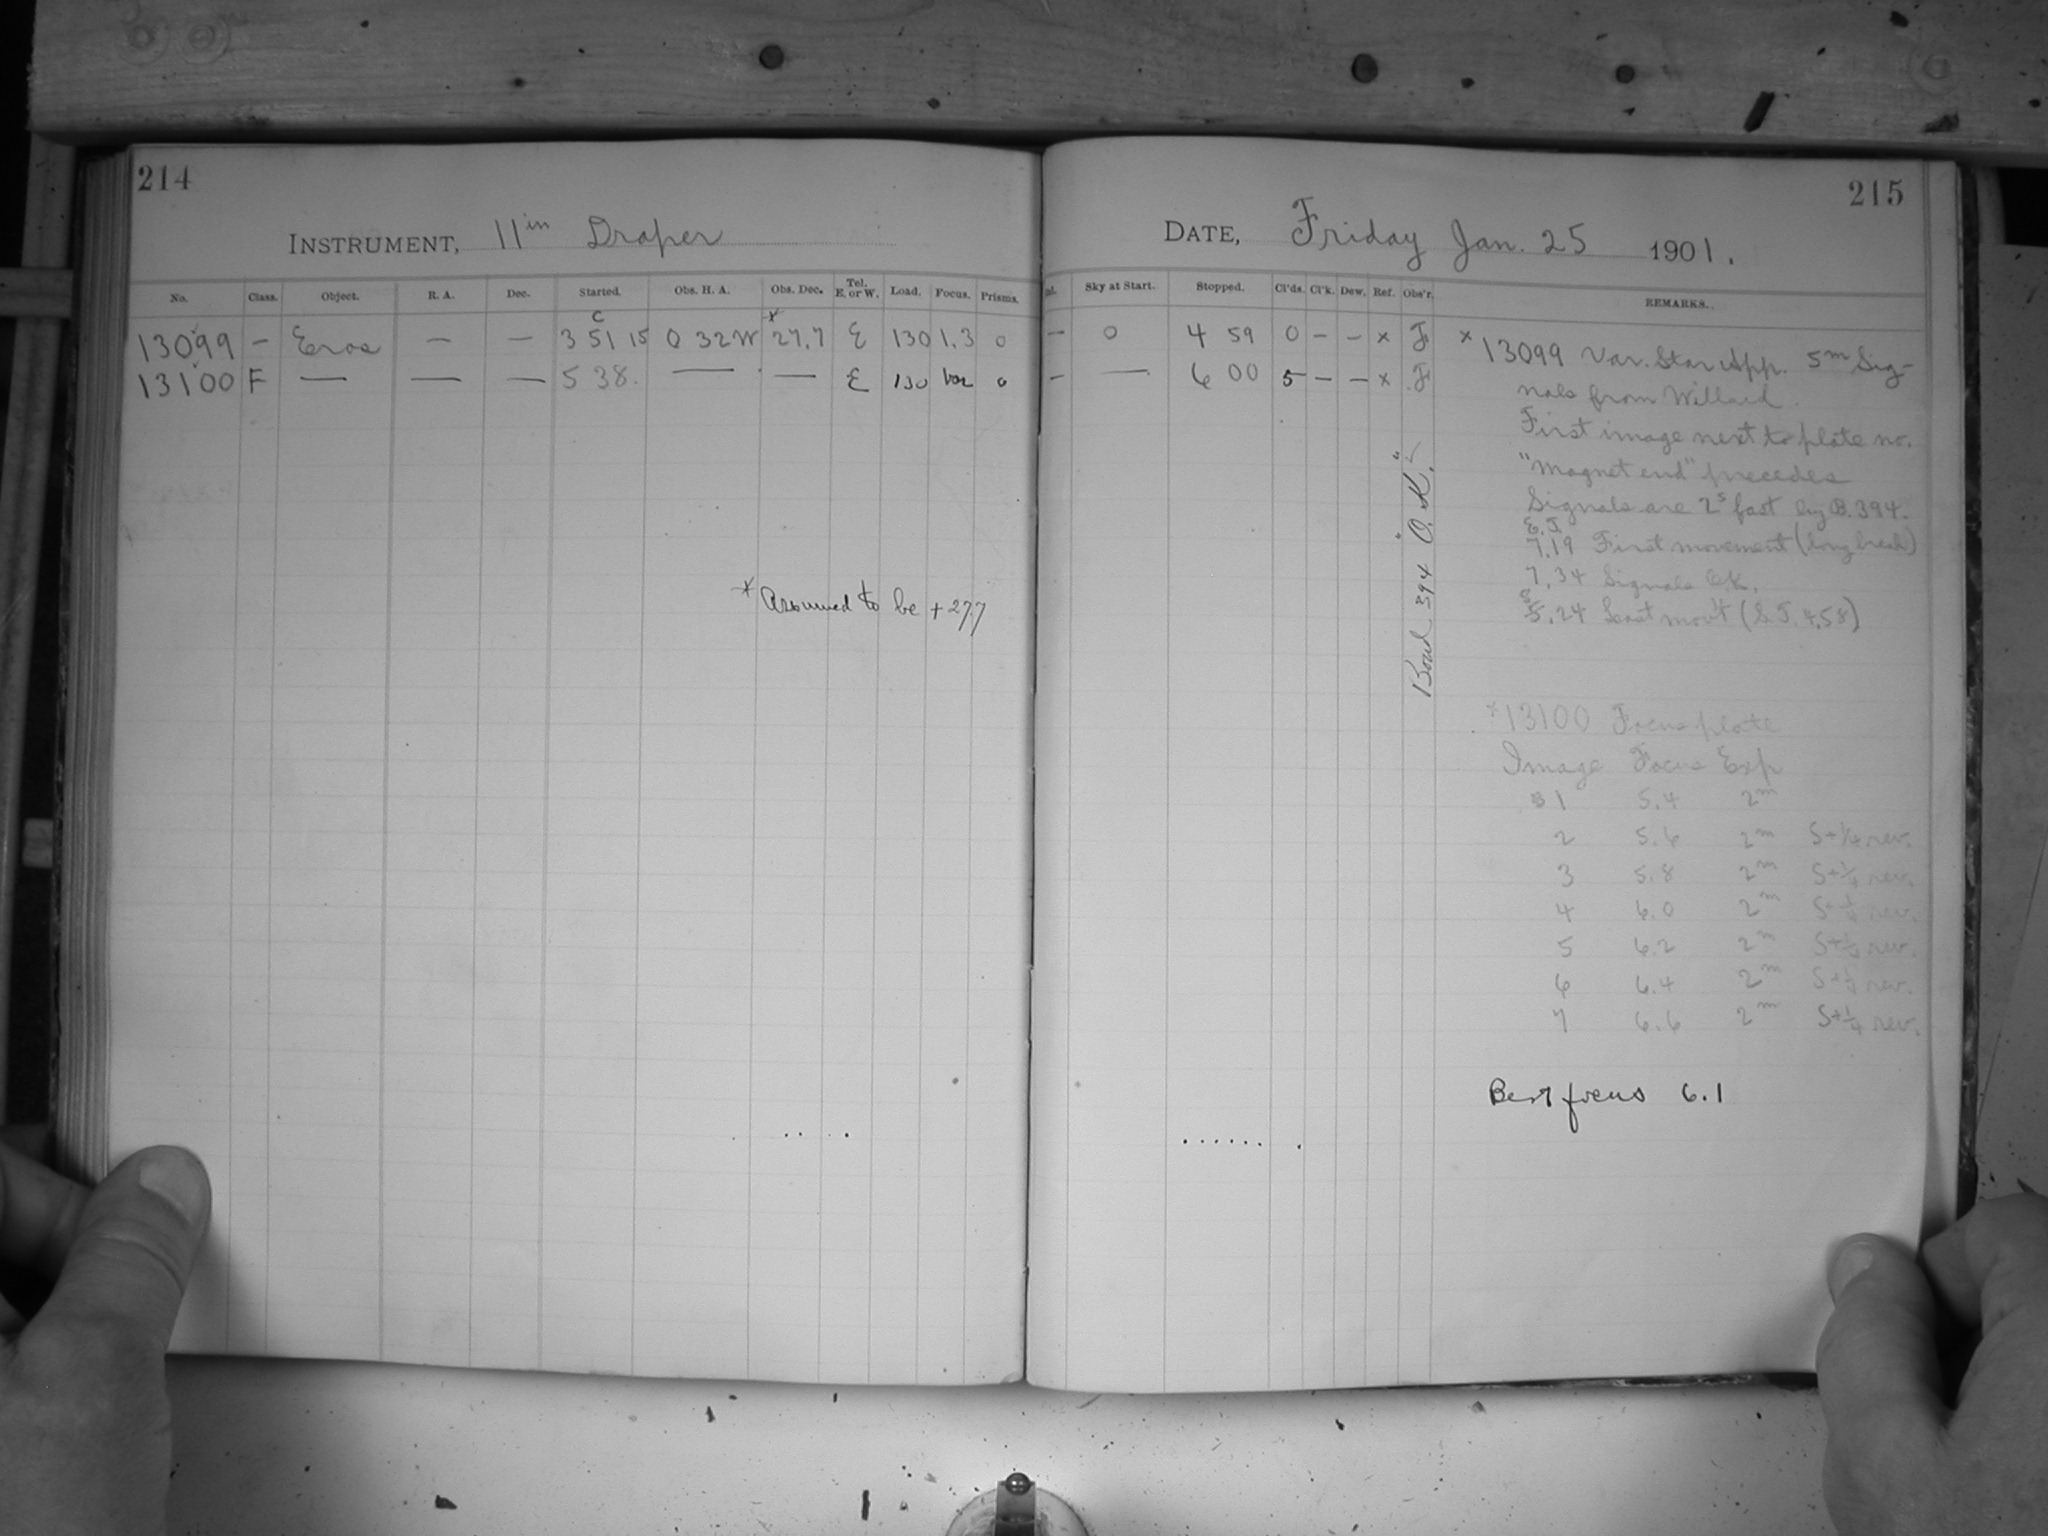 214
INSTRUMENT, 11in Draper
No. Class. Object. R. A. Dec. Started. Obs. H. A. Obs. Dec. Tel. E. or W. Load. Focus. Prisms.
13099 – Eros — — 3 51 15 0 32 W 27.7 E 130 1.3 0
13100 F — — — 5 38. — — E 130 var 0
* Assumed to be + 27.7
215
DATE, Friday Jan. 25 1901.
Sky at Start. Stopped. Cl'ds. Cl'k. Dew. Ref. Obs'r. REMARKS.
– 0 4 59 0 – – x F
– — 6 00 5 – – x F
x 13099 Var. Star App. 5m Sig-
nals from Willard.
First image next to plate no.
"Magnet end" precedes
Signals are 2s fast by B. 394.
E. T.
7.19 First movement (long break)
7.34 Signals O.K.
8.24 Last mov't (S.T. 4.58)
Bond 394 "O.K."
x 13100 Focus plate
Image Focus Exp
1 5.4 2m
2 5.6 2m S+¼ rev.
3 5.8 2m S+¼ rev.
4 6.0 2m S+¼ rev.
5 6.2 2m S+½ rev.
6 6.4 2m S+¼ rev.
7 6.6 2m S+¼ rev.
Best focus 6.1